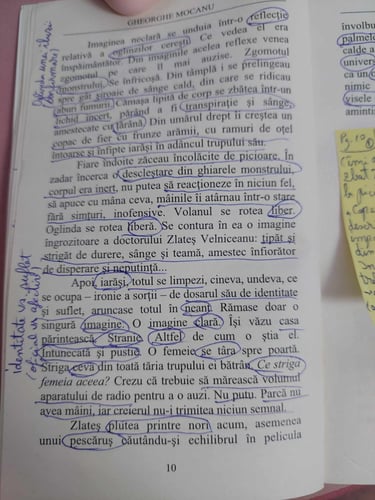 GHEORGHE MOCANU
Imaginea neclară se unduia într-o reflecție
relativă a oglinzilor cerești. Ce vedea el era
înspăimântător. Din imaginile acelea reflexe venea
zgomotul pe care îl mai auzise. Zgomotul
monstrului. Se înfricoșă. Din tâmpla i se prelingeau
spre gât șiroaie de sânge cald, din care se ridicau
aburi fumurii. Cămașa lipită de corp se zbătea într-un
lichid incert, părând a fi transpirație și sânge,
amestecate cu țărână. Din umărul drept îi creștea un
copac de fier cu frunze arămii, cu ramuri de oțel
întoarse și înfipte iarăși în adâncul trupului său.
Fiare îndoite zăceau încolăcite de picioare. În
zadar încerca o descleștare din ghiarele monstrului,
corpul era inert, nu putea să reacționeze în niciun fel,
să apuce cu mâna ceva, mâinile îi atârnau într-o stare
fără simțuri, inofensive. Volanul se rotea liber.
Oglinda se rotea liberă. Se contura în ea o imagine
îngrozitoare a doctorului Zlateș Velniceanu: țipăt și
strigăt de durere, sânge și teamă, amestec înfiorător
de disperare și neputință...
Apoi, iarăși, totul se limpezi, cineva, undeva, ce
se ocupa – ironie a sorții – de dosarul său de identitate
și suflet, aruncase totul în neant. Rămase doar o
singură imagine. O imagine clară. Își văzu casa
părintească. Stranie. Altfel de cum o știa el.
Întunecată și pustie. O femeie se târa spre poartă.
Striga ceva din toată tăria trupului ei bătrân. Ce striga
femeia aceea? Crezu că trebuie să mărească volumul
aparatului de radio pentru a o auzi. Nu putu. Parcă nu
avea mâini, iar creierul nu-i trimitea niciun semnal.
Zlateș plutea printre nori acum, asemenea
unui pescăruș căutându-și echilibrul în pelicula
10